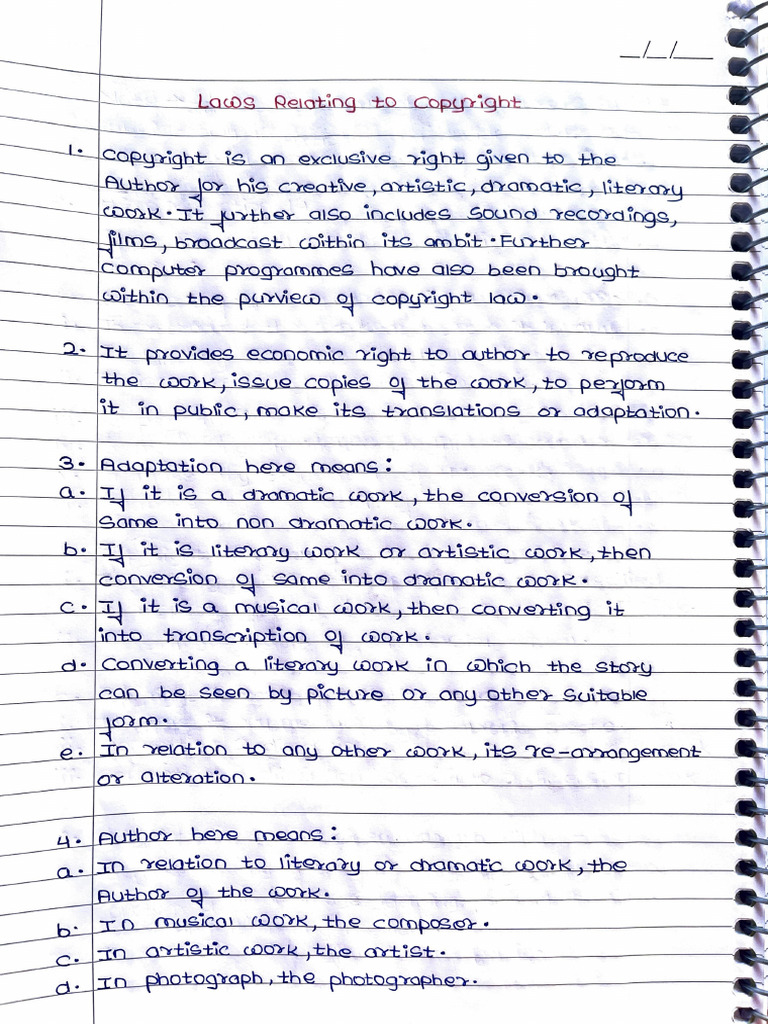 __/__/___
Laws Relating to Copyright
1. Copyright is an exclusive right given to the
Author for his creative, artistic, dramatic, literary
work. It further also includes sound recordings,
films, broadcast within its ambit. Further
computer programmes have also been brought
within the purview of copyright law.
2. It provides economic right to author to reproduce
the work, issue copies of the work, to perform
it in public, make its translations or adaptation.
3. Adaptation here means:
a. If it is a dramatic work, the conversion of
same into non dramatic work.
b. If it is literary work or artistic work, then
conversion of same into dramatic work.
c. If it is a musical work, then converting it
into transcription of work.
d. Converting a literary work in which the story
can be seen by picture or any other suitable
form.
e. In relation to any other work, its re-arrangement
or alteration.
4. Author here means:
a. In relation to literary or dramatic work, the
Author of the work.
b. In musical work, the composer.
c. In artistic work, the artist.
d. In photograph, the photographer.